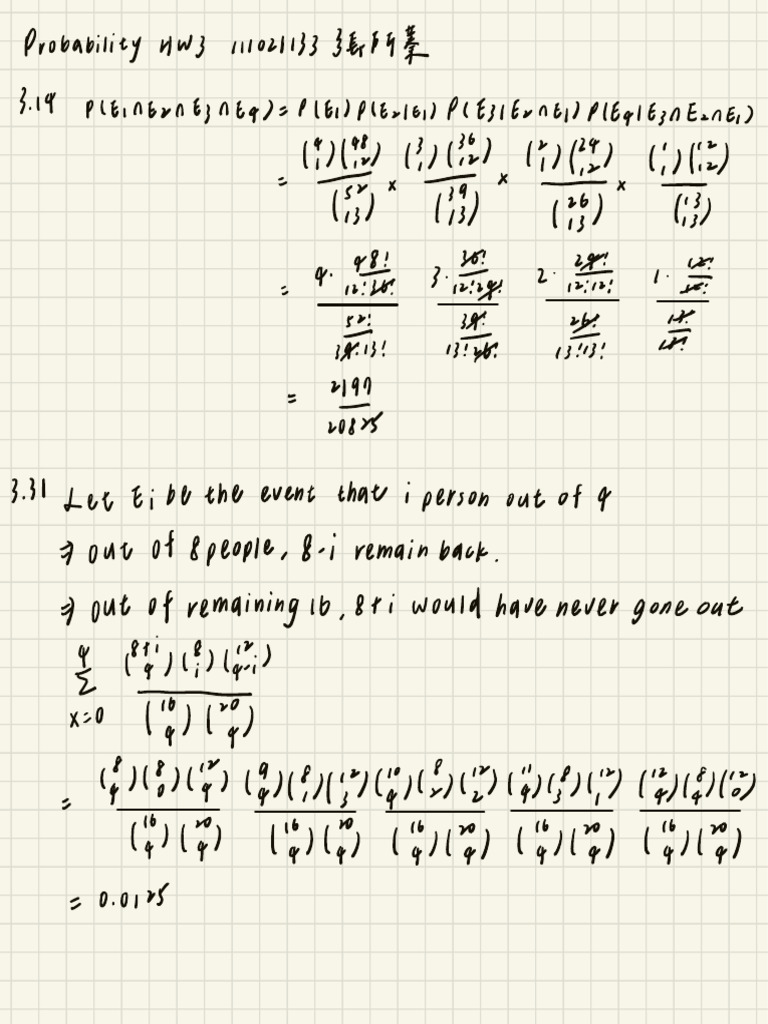 Probability HW3 111021133
3.14 P(E1∩E2∩E3∩E4) = P(E1) P(E2|E1) P(E3|E2∩E1) P(E4|E3∩E2∩E1)
= (4 1)(48 12) / (52 13) × (3 1)(36 12) / (39 13) × (2 1)(24 12) / (26 13) × (1 1)(12 12) / (13 13)
= 4· 48! / 12!36! / 52! / 39!13! 3· 36! / 12!24! / 39! / 13!26! 2· 24! / 12!12! / 26! / 13!13! 1· 12! / 12! / 13! / 13!
= 2197 / 20825
3.31 Let Ei be the event that i person out of 4
⇒ out of 8 people, 8-i remain back.
⇒ out of remaining 16, 8+i would have never gone out
4 Σ x=0 (8+i 4)(8 i)(12 4-i) / (16 4)(20 4)
= (8 4)(8 0)(12 4) / (16 4)(20 4) (9 4)(8 1)(12 3) / (16 4)(20 4) (10 4)(8 2)(12 2) / (16 4)(20 4) (11 4)(8 3)(12 1) / (16 4)(20 4) (12 4)(8 4)(12 0) / (16 4)(20 4)
= 0.0125